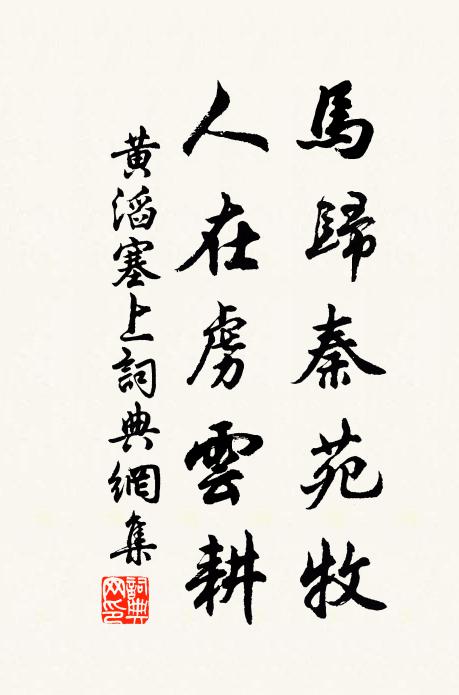 馬歸秦苑牧
人在虜雲耕
黃滔塞上詞典網集
詞典网印